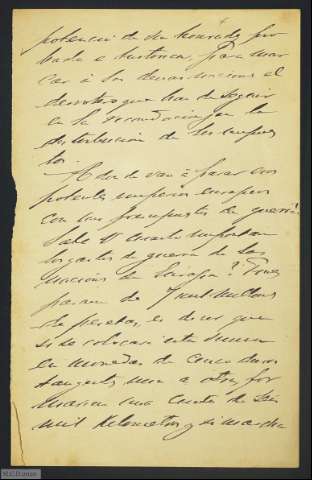 potencia de su honradez pro
bada e historica, para mar
car á las demas naciones el
derrotero que han de seguir
en la recaudacion por la
distribucion de los impues
tos.
A donde van á parar esos
potentes imperios europeos
con sus presupuestos de guerra?
Sabe V. cuanto importan
los gastos de guerra de las
naciones de Europa? Pues
pasan de mil millones
de pesetas, es decir que
si se colocase esta suma
en monedas de cinco duros
tangentes una a otra, for
marian una cinta de seis
mil kilometros y si marcha